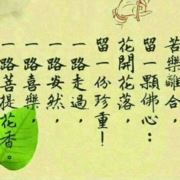 苦樂離合，
留一顆佛心：
花開花落，
留一份珍重！
一路走過，
一路安然，
一路喜樂，
一路菩提花香。